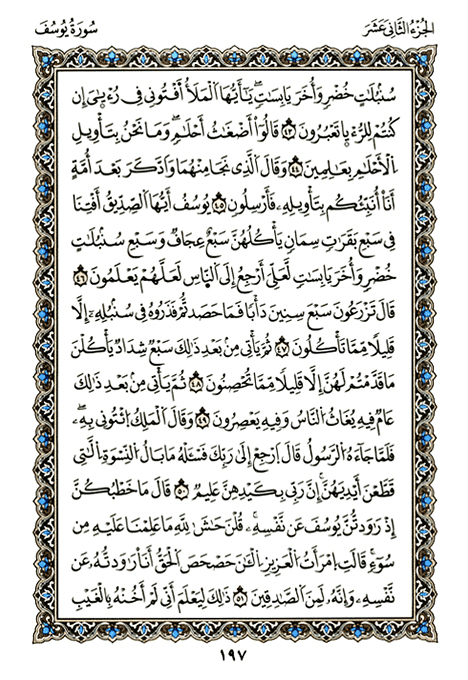 الجُزءُ الثَّانِى عَشَر
سُورَةُ يُوسُفَ
سُنۢبُلَٰتٍ خُضْرٍ وَأُخَرَ يَابِسَٰتٍ ۖ يَٰٓأَيُّهَا ٱلْمَلَأُ أَفْتُونِى فِى رُءْيَٰىَ إِن
كُنتُمْ لِلرُّءْيَا تَعْبُرُونَ ٤٣ قَالُوٓا۟ أَضْغَٰثُ أَحْلَٰمٍ ۖ وَمَا نَحْنُ بِتَأْوِيلِ
ٱلْأَحْلَٰمِ بِعَٰلِمِينَ ٤٤ وَقَالَ ٱلَّذِى نَجَا مِنْهُمَا وَٱدَّكَرَ بَعْدَ أُمَّةٍ
أَنَا۠ أُنَبِّئُكُم بِتَأْوِيلِهِۦ فَأَرْسِلُونِ ٤٥ يُوسُفُ أَيُّهَا ٱلصِّدِّيقُ أَفْتِنَا
فِى سَبْعِ بَقَرَٰتٍ سِمَانٍ يَأْكُلُهُنَّ سَبْعٌ عِجَافٌ وَسَبْعِ سُنۢبُلَٰتٍ
خُضْرٍ وَأُخَرَ يَابِسَٰتٍ لَّعَلِّىٓ أَرْجِعُ إِلَى ٱلنَّاسِ لَعَلَّهُمْ يَعْلَمُونَ ٤٦
قَالَ تَزْرَعُونَ سَبْعَ سِنِينَ دَأَبًا فَمَا حَصَدتُّمْ فَذَرُوهُ فِى سُنۢبُلِهِۦٓ إِلَّا
قَلِيلًا مِّمَّا تَأْكُلُونَ ٤٧ ثُمَّ يَأْتِى مِنۢ بَعْدِ ذَٰلِكَ سَبْعٌ شِدَادٌ يَأْكُلْنَ
مَا قَدَّمْتُمْ لَهُنَّ إِلَّا قَلِيلًا مِّمَّا تُحْصِنُونَ ٤٨ ثُمَّ يَأْتِى مِنۢ بَعْدِ ذَٰلِكَ
عَامٌ فِيهِ يُغَاثُ ٱلنَّاسُ وَفِيهِ يَعْصِرُونَ ٤٩ وَقَالَ ٱلْمَلِكُ ٱئْتُونِى بِهِۦ ۖ
فَلَمَّا جَآءَهُ ٱلرَّسُولُ قَالَ ٱرْجِعْ إِلَىٰ رَبِّكَ فَسْـَٔلْهُ مَا بَالُ ٱلنِّسْوَةِ ٱلَّٰتِى
قَطَّعْنَ أَيْدِيَهُنَّ ۚ إِنَّ رَبِّى بِكَيْدِهِنَّ عَلِيمٌ ٥٠ قَالَ مَا خَطْبُكُنَّ
إِذْ رَٰوَدتُّنَّ يُوسُفَ عَن نَّفْسِهِۦ ۚ قُلْنَ حَٰشَ لِلَّهِ مَا عَلِمْنَا عَلَيْهِ مِن
سُوٓءٍ ۚ قَالَتِ ٱمْرَأَتُ ٱلْعَزِيزِ ٱلْـَٰٔنَ حَصْحَصَ ٱلْحَقُّ أَنَا۠ رَٰوَدتُّهُۥ عَن
نَّفْسِهِۦ وَإِنَّهُۥ لَمِنَ ٱلصَّٰدِقِينَ ٥١ ذَٰلِكَ لِيَعْلَمَ أَنِّى لَمْ أَخُنْهُ بِٱلْغَيْبِ
١٩٧